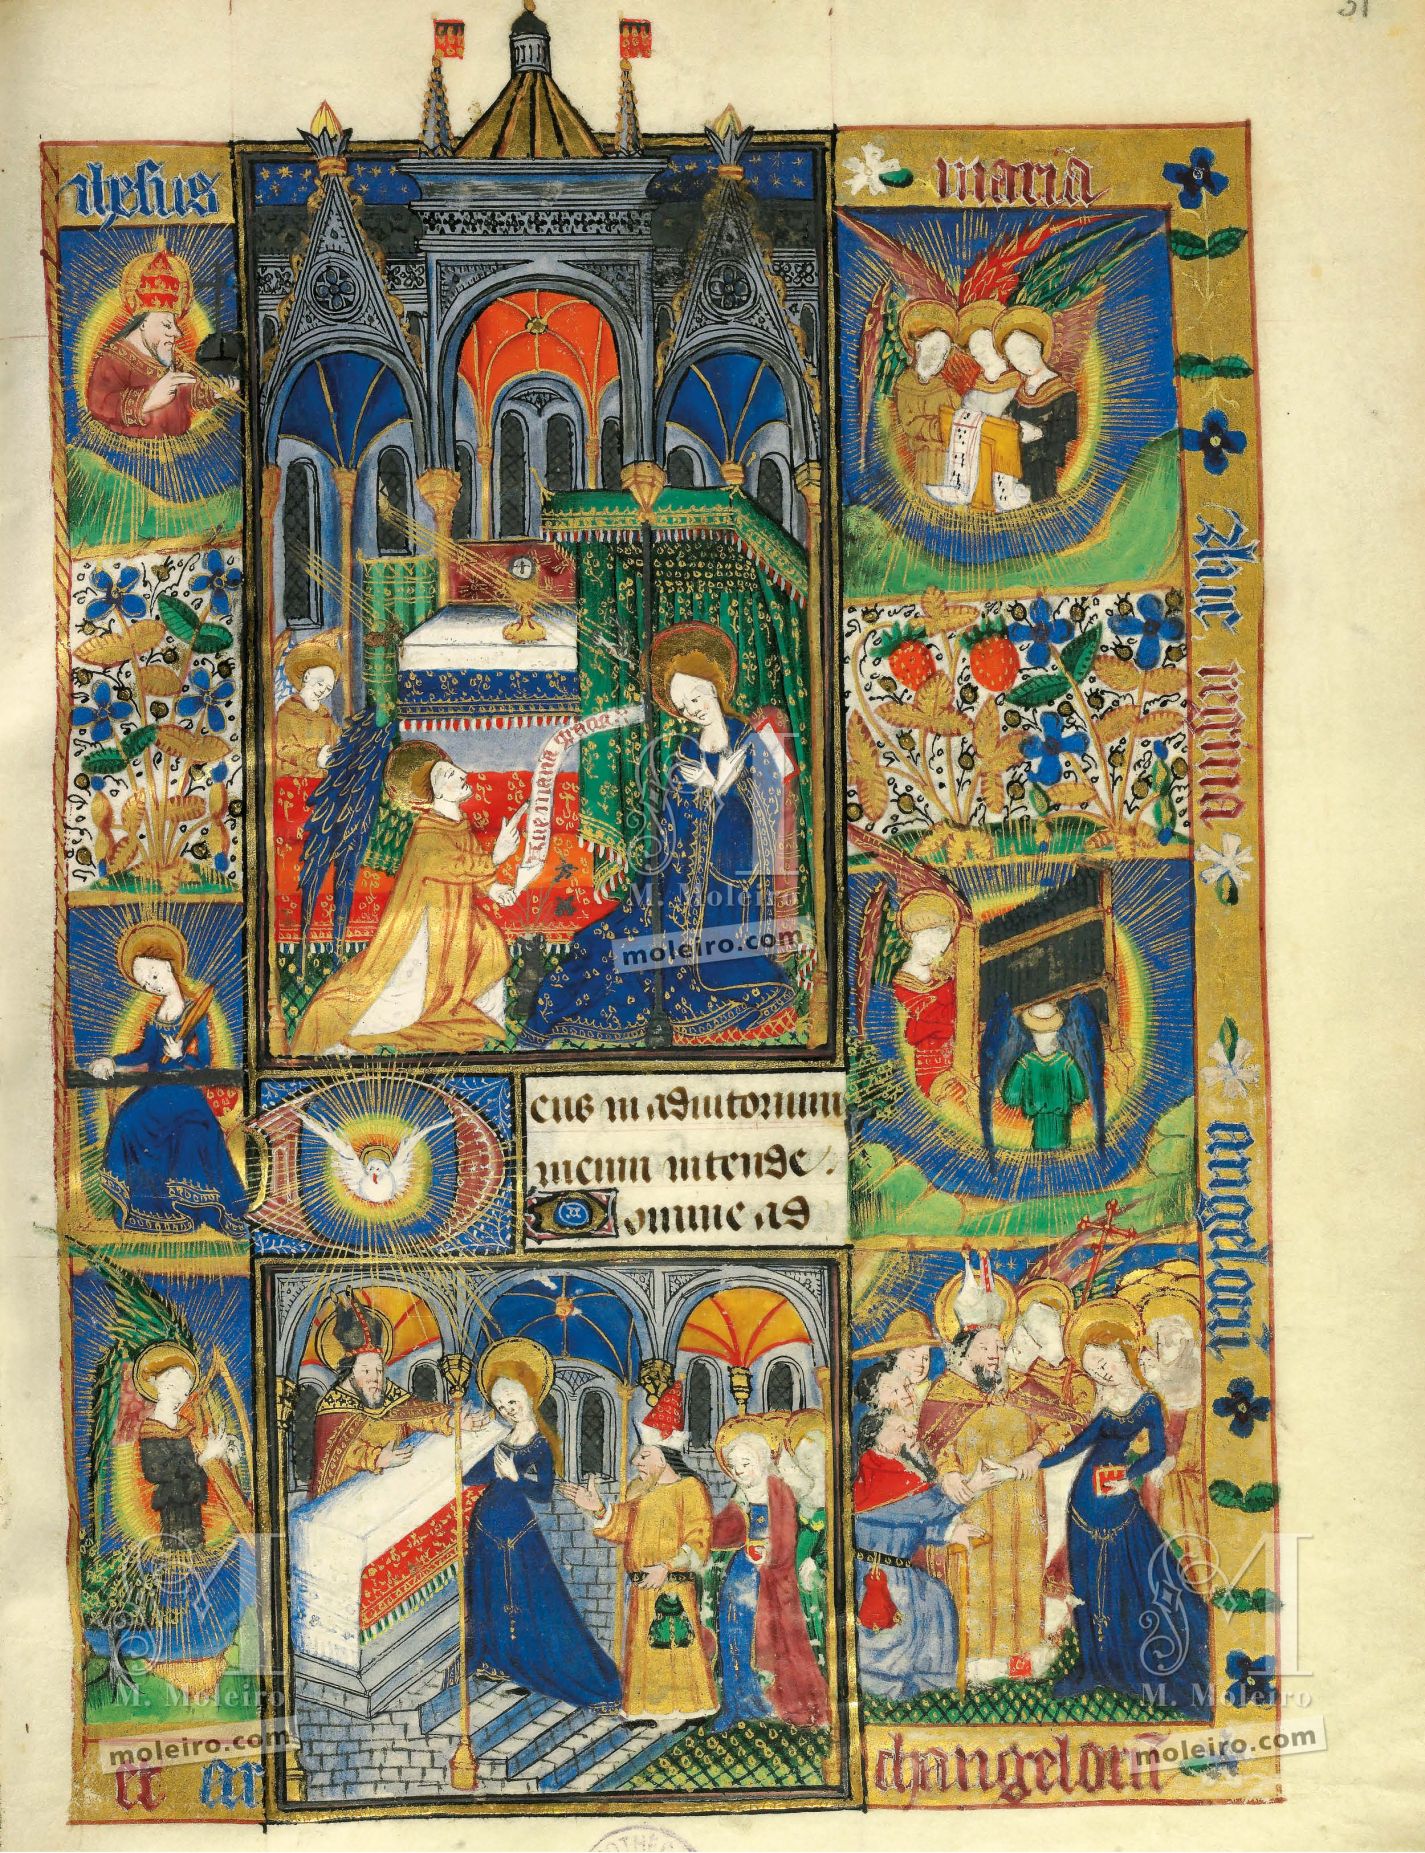 31
ihesus
maria
Ave maria gracia
hec regina
angelorum
M. Moleiro
moleiro.com
Deus in adiutorium
meum intende.
Domine ad
M. Moleiro
moleiro.com
M. Moleiro
moleiro.com
et ar
changelorum